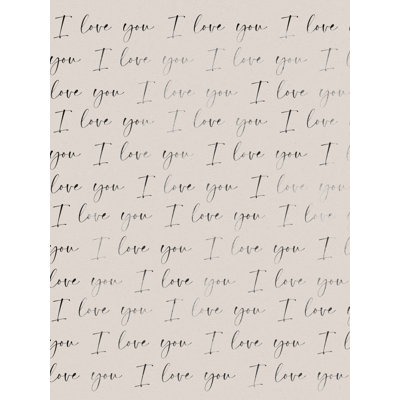 I love you I love you I love
you I love you I love you I
love you I love you I love you
I love you I love you I love
you I love you I love you I
love you I love you I love you
I love you I love you I love
you I love you I love you I
love you I love you I love you
I love you I love you I love
you I love you I love you I
love you I love you I love you